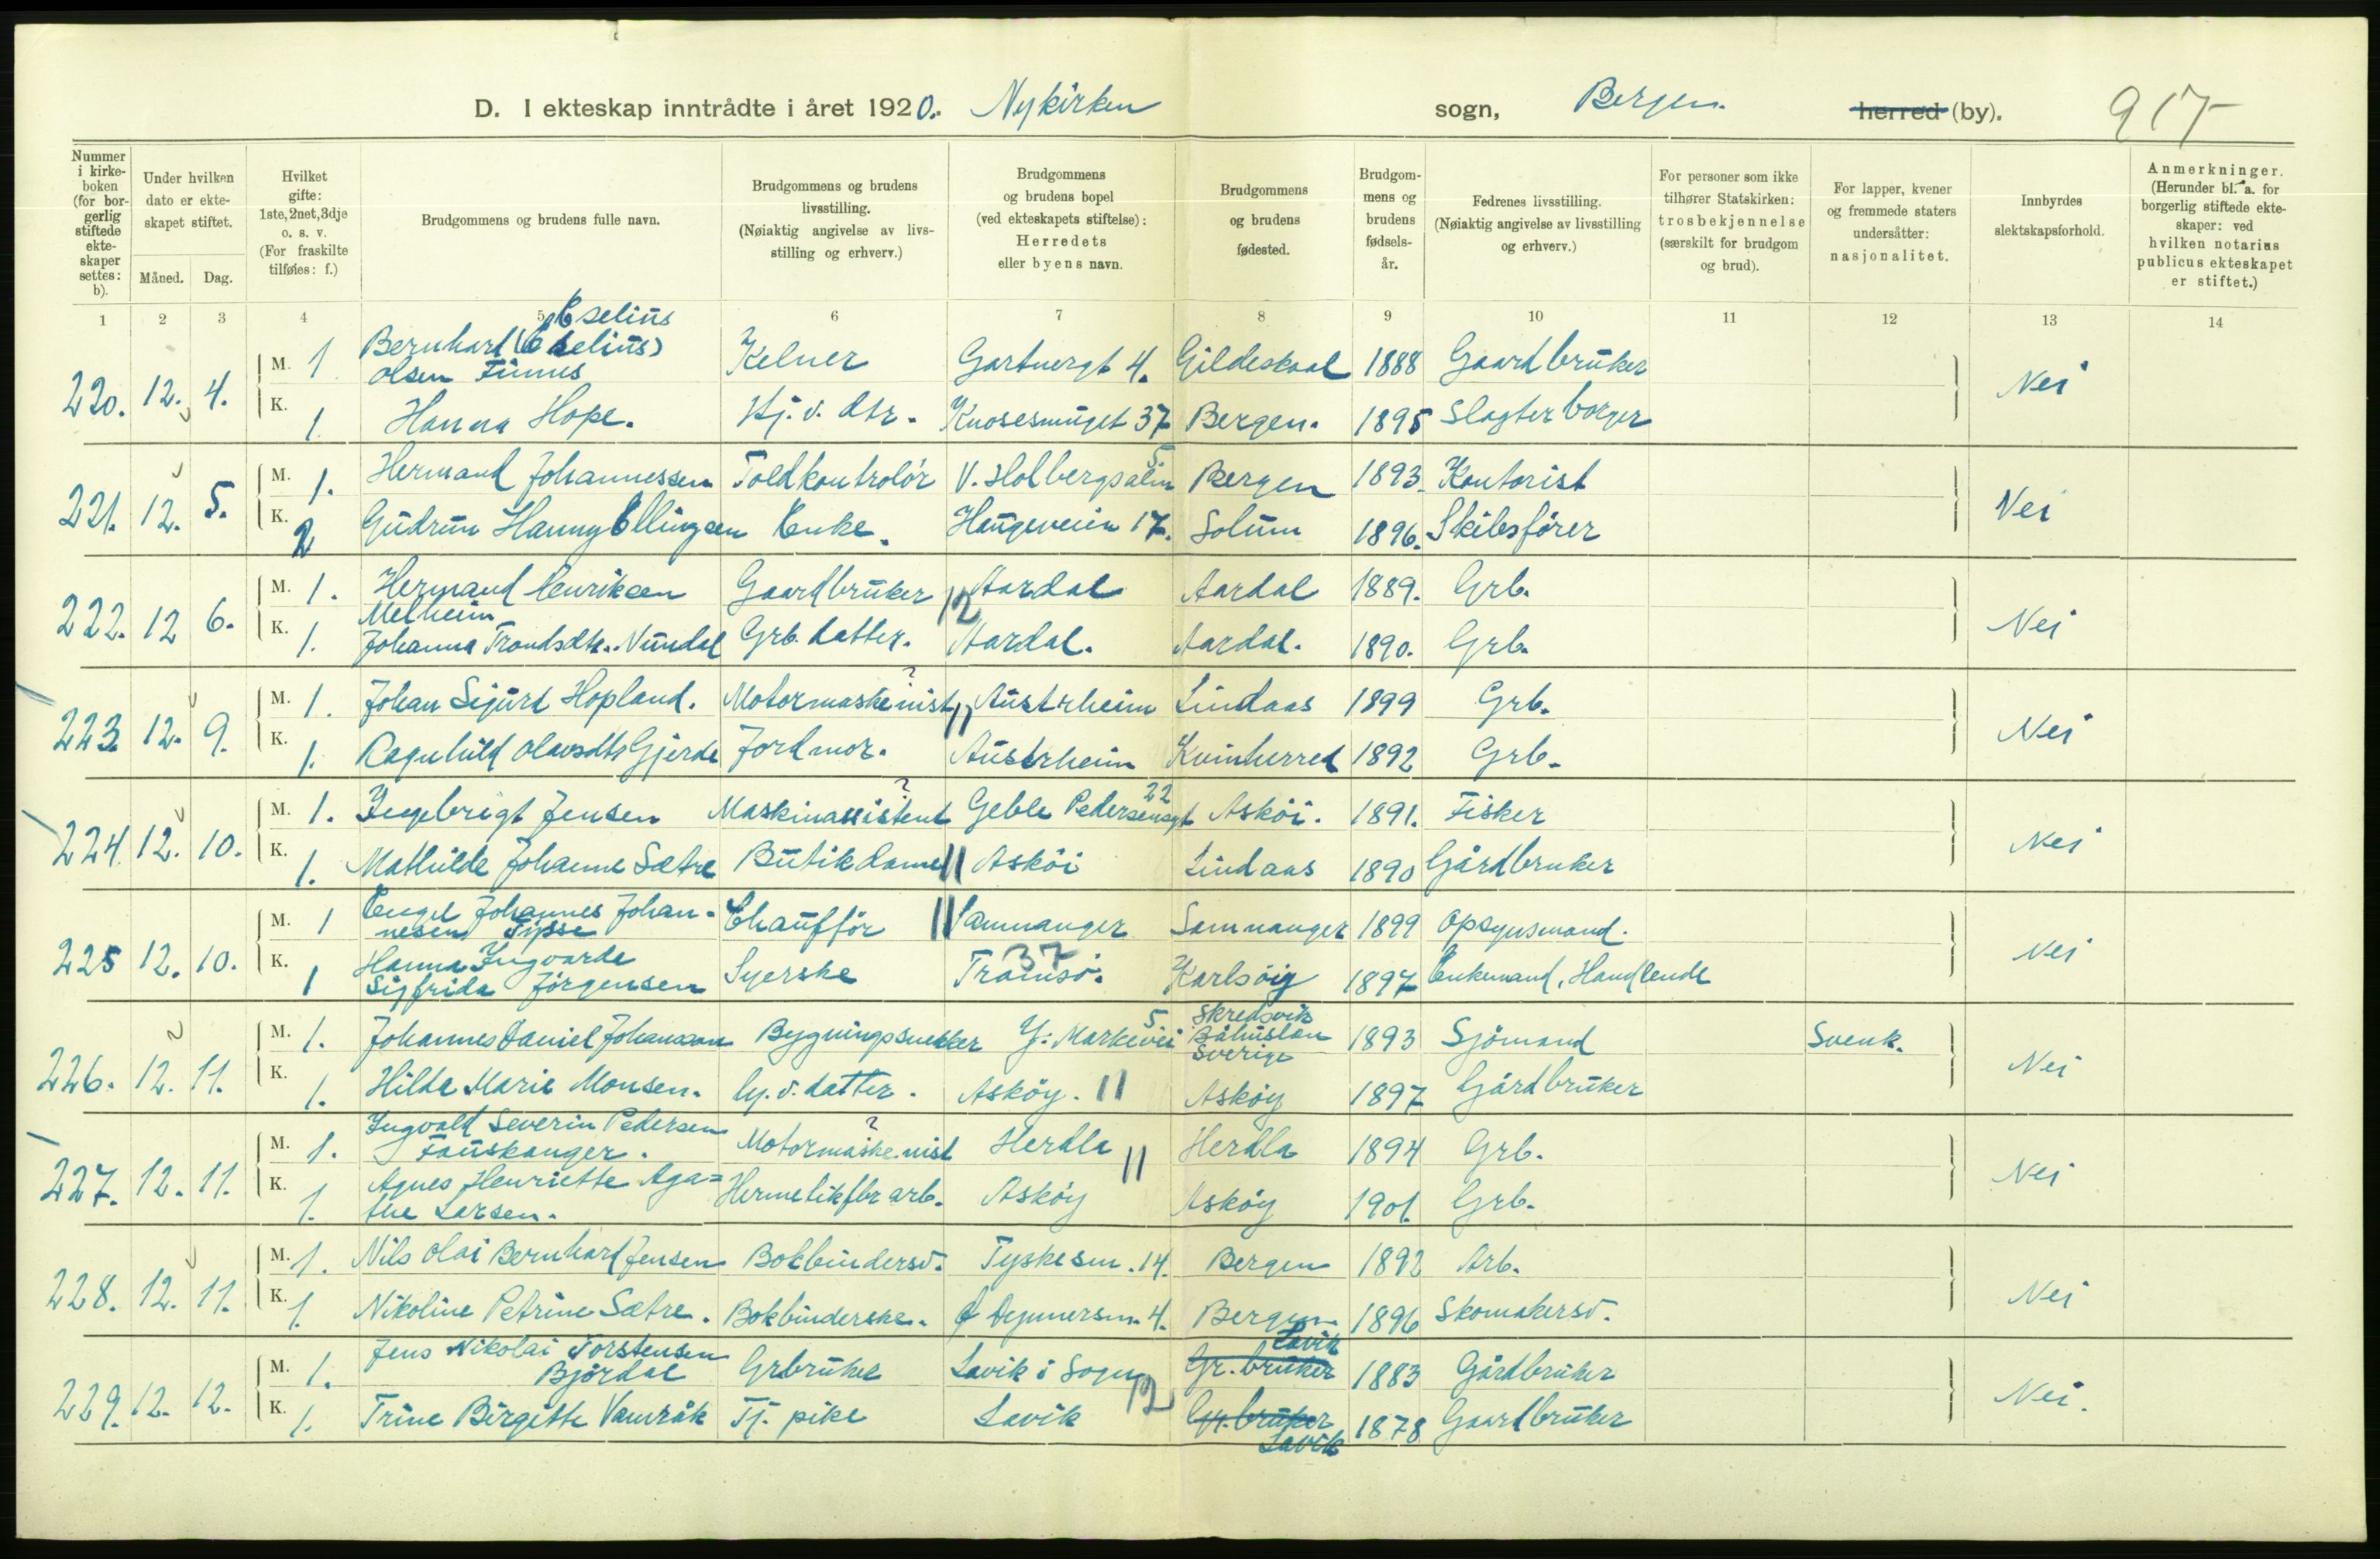 D. I ekteskap inntrådte i året 1920. Nykirken sogn, Bergen. herred (by). 917
Nummer i kirke-boken (for bor-gerlig stiftede ekte-skaper settes: b).
Under hvilken dato er ekte-skapet stiftet.
Måned. Dag.
Hvilket gifte: 1ste, 2net, 3dje o. s. v. (For fraskilte tilføies: f.)
Brudgommens og brudens fulle navn.
Brudgommens og brudens livsstilling. (Nøiaktig angivelse av livs-stilling og erhverv.)
Brudgommens og brudens bopel (ved ekteskapets stiftelse): Herredets eller byens navn.
Brudgommens og brudens fødested.
Brudgom-mens og brudens fødsels-år.
Fedrenes livsstilling. (Nøiaktig angivelse av livsstilling og erhverv.)
For personer som ikke tilhører Statskirken: trosbekjennelse (særskilt for brudgom og brud).
For lapper, kvener og fremmede staters undersåtter: nasjonalitet.
Innbyrdes slektskapsforhold.
Anmerkninger. (Herunder bl. a. for borgerlig stiftede ekte-skaper: ved hvilken notarius publicus ekteskapet er stiftet.)
1 2 3 4 5 6 7 8 9 10 11 12 13 14
Eselius
220. 12. 4. M. 1 Bernhard (Eselius) Olsen Finnes Kelner Gartnergt 4. Gildeskaal 1888 Gaardbruker Nei
K. 1. Hanna Hope. Hj. v. dtr. Knosesmuget 37 Bergen. 1895 Slagterborger
221. 12. 5. M. 1. Hermand Johannessen Toldkontrolör V. Holbergsalm 5 Bergen 1893. Kontorist Nei
K. 2 Gudrun Hanny Ellingsen Enke. Haugeveien 17. Solum 1896. Skibsförer
222. 12 6. M. 1. Hermand Henriksen Melheim Gaardbruker 12 Aardal Aardal 1889. Grb. Nei
K. 1. Johanna Trondsdtr. Nundal Grb. datter. Aardal. Aardal. 1890. Grb.
223. 12. 9. M. 1. Johan Sigurd Hopland. Motormaskinist ? 11 Austrheim Lindaas 1899 Grb. Nei
K. 1. Ragnhild Olavsdtr Gjerde Jordmor. Austrheim Kvinherred 1892 Grb.
224. 12. 10. M. 1. Ingebrigt Jensen Maskinassistent ? Geble Pedersensgt 22 Asköi. 1891. Fisker Nei
K. 1. Mathilde Johanne Sætre Butikdame 11 Asköi Lindaas 1890 Gårdbruker
225 12. 10. M. 1 Engel Johannes Johan-nesen Tysse Chafför 11 Samnanger Samnanger 1899 Opsynsmand. Nei
K. 1 Hanna Ingvarda Sigfrida Jörgensen Syerske Tromsö. 37 Karlsöy 1897 Enkemand, Handlende
226. 12. 11. M. 1. Johannes Daniel Johansson Bygningssnekker Y: Markevei 5 Skredsvik Båhuslän Sverige 1893 Sjömand Svensk. Nei
K. 1. Hilda Marie Monsen. Hj. v. datter. Asköy. 11 Asköy 1897 Gårdbruker
227. 12. 11. M. 1. Ingvald Severin Pedersen Fauskanger. Motormaskinist ? Herdla 11 Herdla 1894 Grb. Nei
K. 1. Agnes Henriette Aga=the Larsen. Hermetikfbr arb. Asköy Asköy 1901. Grb.
228. 12. 11. M. 1. Nils Olai Bernhard Jensen Bokbindersv. Tyskesm. 14. Bergen 1892 Arb. Nei
K. 1. Nikoline Petrine Sætre. Bokbinderske. 4. Bergen 1896 Skomakersv.
229. 12. 12. M. 1. Jens Nikolai Torstensen Björdal Grbruker Lavik i Sogn 12 Gr. bruker Lavik 1883 Gårdbruker Nei.
K. 1. Trine Birgitte Vamråk Tj. pike Lavik Gr. bruker Lavik 1878 Gaardbruker